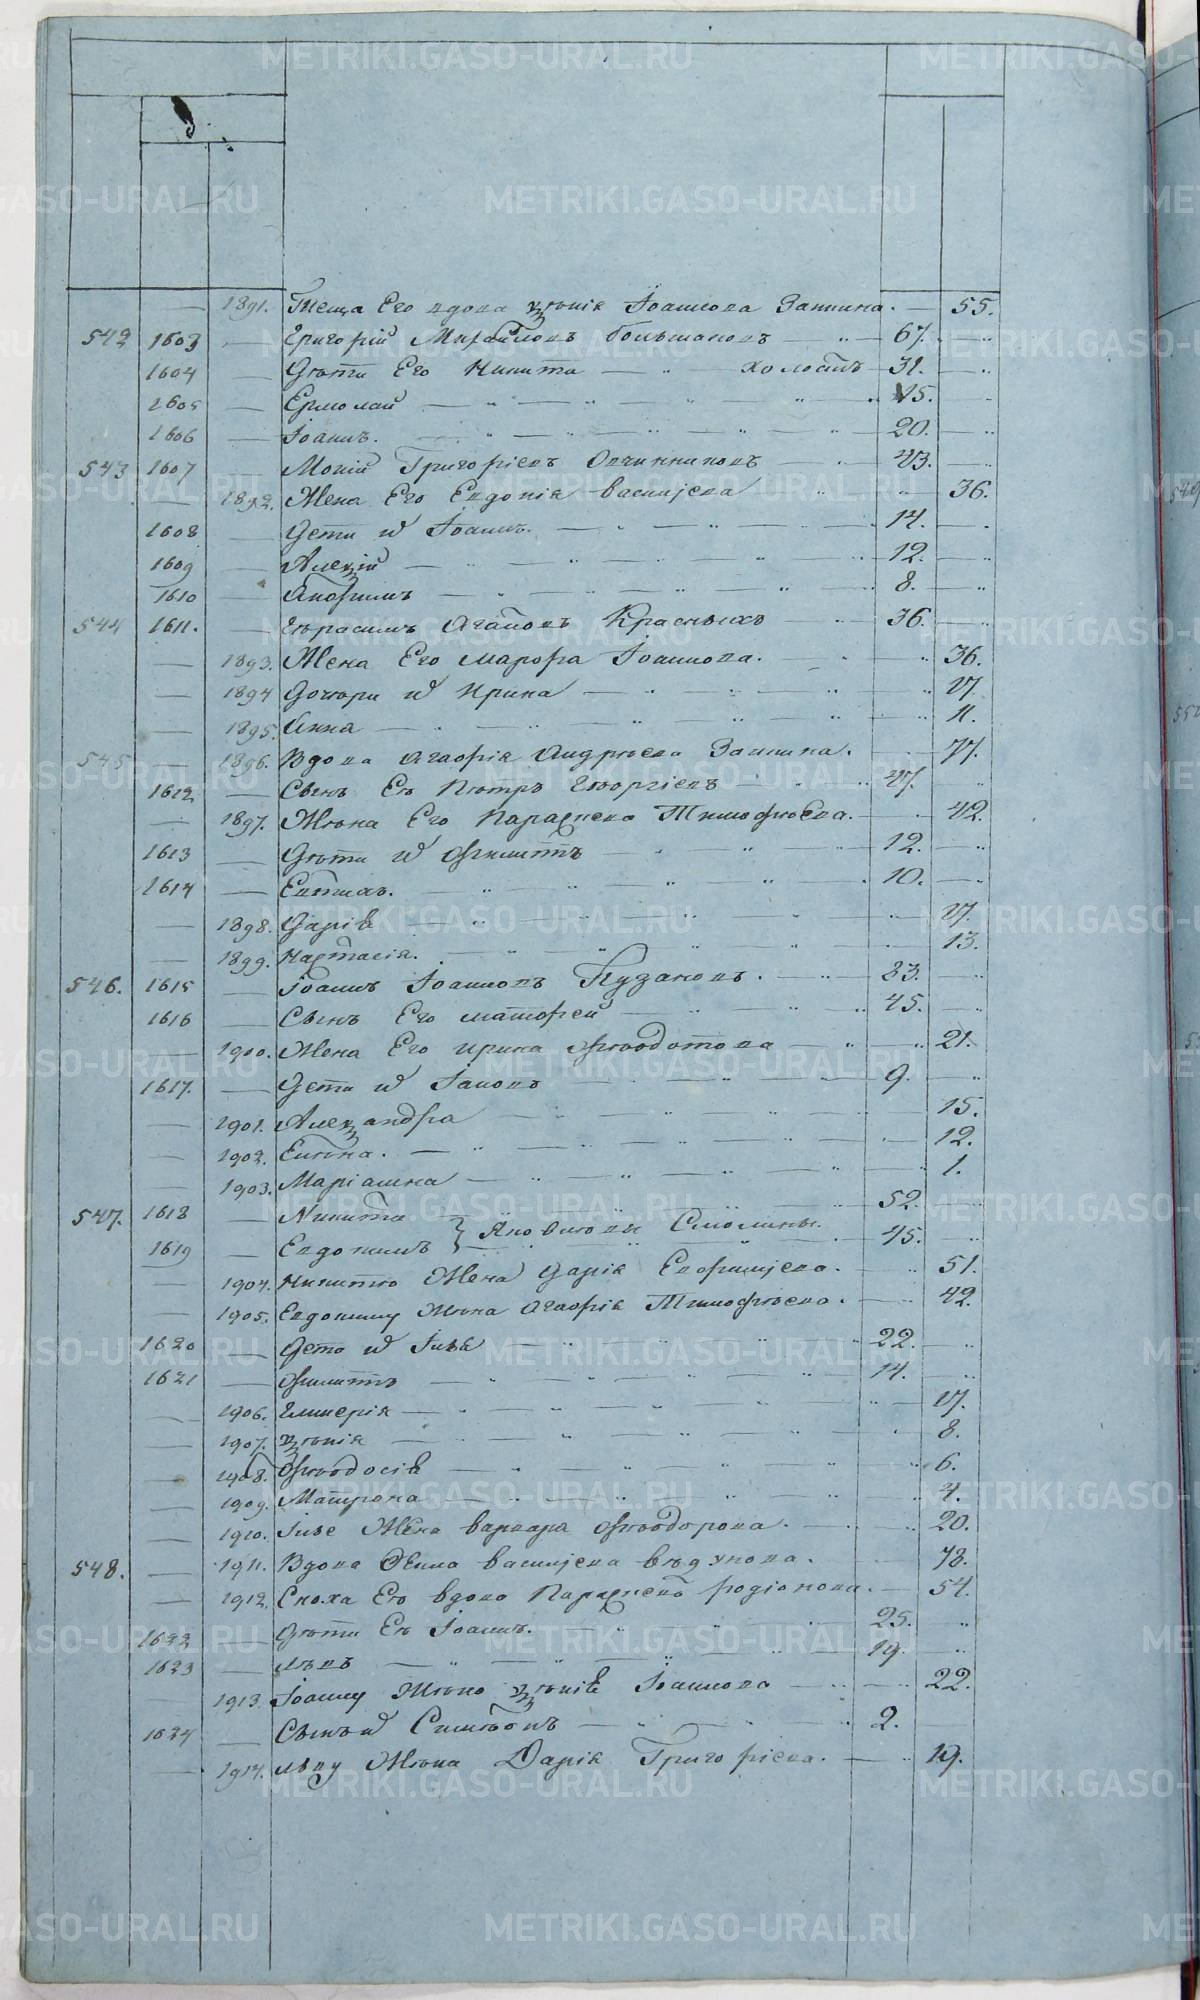 1891. Теща Его вдова Ксенія Іоаннова Зашина. 55.
542 1603 Григорій Михайловъ Большаковъ 67.
1604 Дѣти Его Никита холостъ 31.
1605 Ермолай 25.
1606 Іоаннъ. 20.
543 1607 Мокій Григоріевъ Овчинниковъ 43.
1892. Жена Его Евдокія Васильева 36.
1608 Дети и Іоаннъ. 14.
1609 Алексій 12.
1610 8.
544 1611. Герасимъ Агаповъ Красныхъ 36.
1893. Жена Его Марфа Іоаннова. 36.
1894 Дочери и Ирина 17
1895. Анна 11.
545 1896. Вдова Агафія Андреева Зашина. 77.
1612 Сынъ Ея Петръ Георгіевъ 47.
1897. Жена Его Параскева Тимофеева. 42.
1613 Дѣти и Филиппъ 12.
1614 Евтихъ. 10.
1898. Дарія 17.
1899. Настасія. 13.
546. 1615 Іоаннъ Іоанновъ Пузановъ. 83.
1616 Сынъ Его Матфей 45.
1900. Жена Его Ирина Феодотова 21.
1617. Дети и Іаковъ 9.
1901. Александра 15.
1902. Елена. 12.
1903. Маріамна 1.
547. 1618 Никита 52.
1619 Евдокимъ } Яковлевы Смолины. 45.
1904. Никиты Жена Дарія Ефимьева. 51.
1905. Евдокиму Жена Агафія Тимофеева. 42.
1620 Дети и Іовъ 22.
1621 Филиппъ 14.
1906. Гликерія 17.
1907. Ксенія 8.
1908. Феодосія 6.
1909. Матрона 4.
1910. Іове Жена Варвара Феодорова. 20.
548. 1911. Вдова Васильева Ведунова. 78.
1912. Сноха Ея вдова Параскева Родіонова. 54.
1622 Дѣти Ея Іоаннъ. 25.
1623 Левъ 19.
1913. Іоанну Жена Ксенія Іоаннова 22.
1624 Сынъ и Симеонъ 2.
1914. Льву Жена Дарія Григоріева. 19.
METRIKI.GASO-URAL.RU